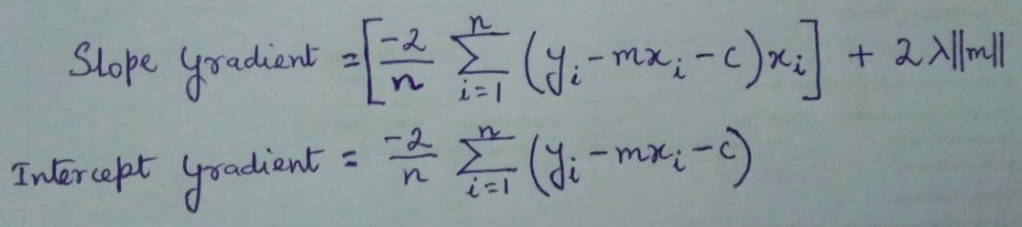 Slope gradient = [-2/n ∑_{i=1}^{n} (y_i - mx_i - c)x_i] + 2λ||m||
Intercept gradient = -2/n ∑_{i=1}^{n} (y_i - mx_i - c)